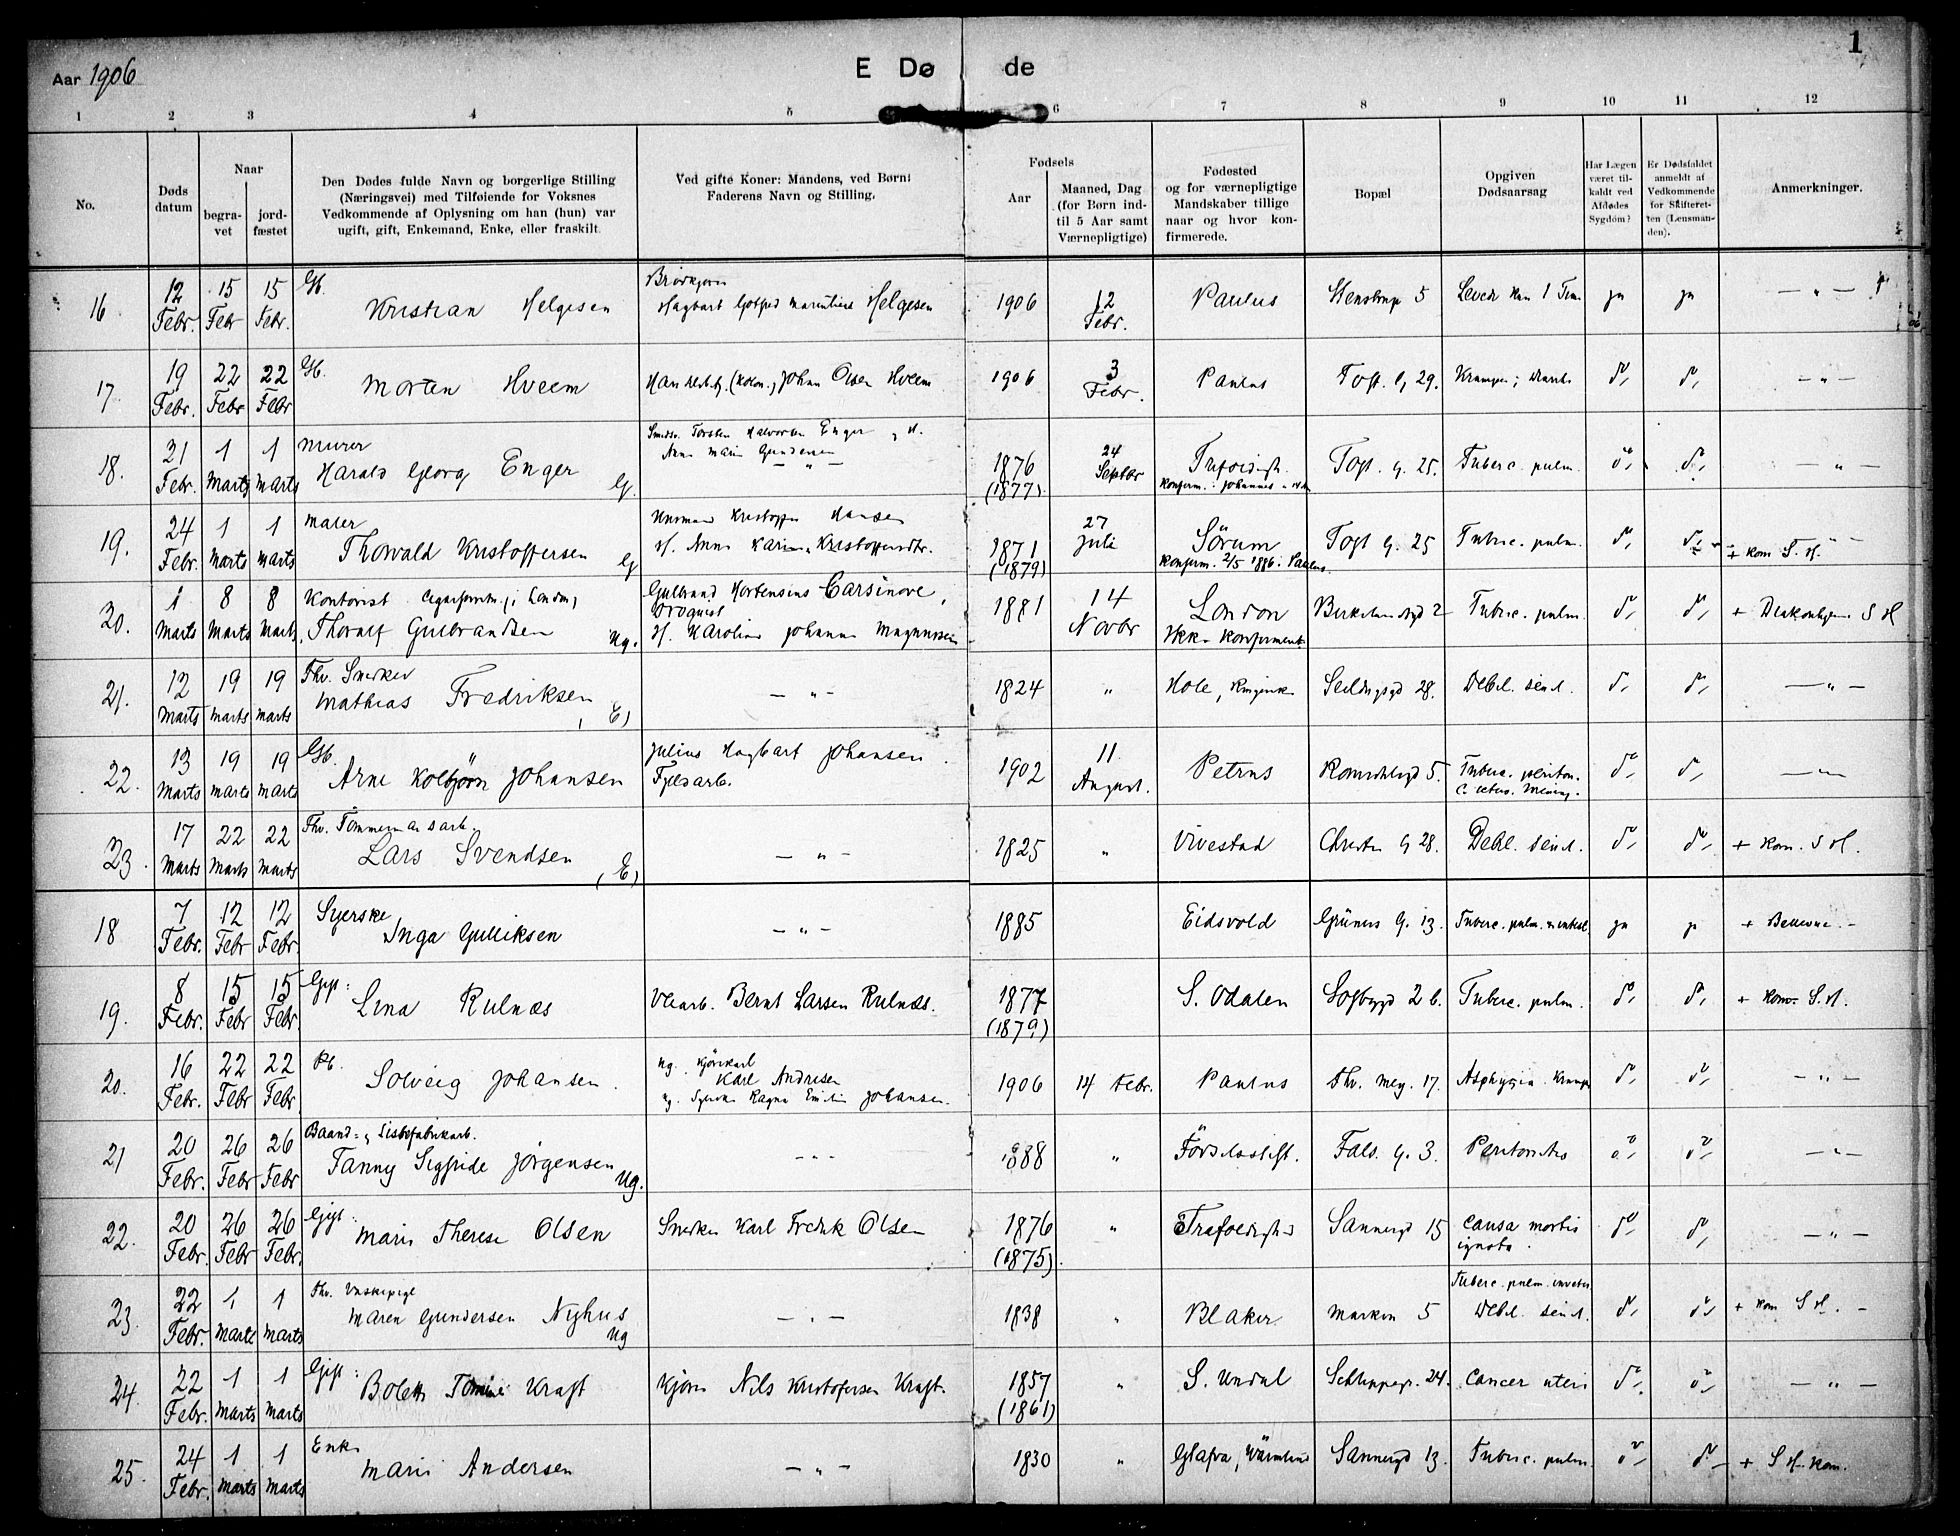 1
Aar 1906
E Døde
1 2 3 4 5 6 7 8 9 10 11 12
No.
Døds datum
Naar
begra-vet
jord-fæstet
Den Dødes fulde Navn og borgerlige Stilling
(Næringsvei) med Tilføiende for Voksnes
Vedkommende af Oplysning om han (hun) var
ugift, gift, Enkemand, Enke, eller fraskilt.
Ved gifte Koner: Mandens, ved Børn:
Faderens Navn og Stilling.
Fødsels
Aar
Maaned, Dag
(for Børn ind-
til 5 Aar samt
Værnepligtige)
Fødested
og for værnepligtige
Mandskaber tillige
naar og hvor kon-
firmerede.
Bopæl
Opgiven
Dødsaarsag
Har Lægen
været til-
kaldt ved
Afdødes
Sygdom?
Er Dødsfaldet
anmeldt af
Vedkommende
for Skifteret-
ten (Lensman-
den).
Anmerkninger.
16. 12 Febr. 15 Febr 15 Febr. Kristian Helgesen Helgesen 1906 12 Febr. Paulus 5 Levede kun 1 Tim. ja ja — " —
17. 19 Febr. 22 Febr 22 Febr Morten Hveem Johan Olsen Hveem 1906 3 Febr. Paulus Toft. g. 29. do do — " —
18. 21 Febr. 1 Marts 1 Marts Murer
Harald Georg Enger G. Torsten Halvorsen Enger og H.
Anne Marie Gundersen 1876
(1877) 24 Septbr Trefoldigh.
Konfirm. i Johannes Toft. g. 25. Tuberc. pulm. do do — " —
19. 24 Febr. 1 Marts 1 Marts Maler
Thorvald Kristoffersen G Husmand Kristoffer Hansen
H. Anne Karine Kristoffersdtr. 1871
(1879) 27 Juli Sørum
Konfirm. 2/5 1886 i Paulus Toft g. 25 Tuberc. pulm. do do + Kom S. H.
20. 1 Marts 8 Marts 8 Marts Kontorist
Thoralf Gulbrandsen Ug. Gulbrand Hortensius Carsinove,
H. Karoline Johanne Magnussen 1881 14 Novbr London
Ikke Konfirmeret Tuberc. pulm. do do + S H
21. 12 Marts 19 Marts 19 Marts Fhv. Snedker
Mathias Fredriksen (E) — " — 1824 " Hole, Ringerike 28. Debil. senil. do do — " —
22. 13 Marts 19 Marts 19 Marts Arne Kolbjørn Johansen Julius Hagbart Johansen.
1902 11 August. Petrus 5. Tuberc. periton. do do — " —
23. 17 Marts 22 Marts 22 Marts Fhv. Tømmermandsarb.
Lars Svendsen (E) — " — 1825 " Vivestad G 28. Debil. senil. do do + Kom. S H.
18 7 Febr. 12 Febr 12 Febr. Syerske
Inga Gulliksen — " — 1885 Eidsvold Grüners g. 13. Tuberc. pulm. ja ja + Bellevue. —
19. 8 Febr. 15 Febr 15 Febr. Gift:
Lina Rulnæs Bernt Larsen Rulnæs. 1877
(1879) S. Odalen Tuberc. pulm. do do + Kom. S. H.
20. 16 Febr. 22 Febr 22 Febr. Pb.
Solveig Johansen. Ug. Kjørekarl
Karl Andresen
Ug. Ragna Johansen. 1906 14 Febr. Paulus thv. Mey. 17. do do — " —
21 20 Febr. 26 Febr 26 Febr Baand- og Lisbefabrikarb.
Fanny Sigfride Jørgensen Ug. — " — 1888 " Fødselsstift. Fals. g. 3. Peritonitis do do — " —
22. 20 Febr. 26 Febr 26 Febr. Gift:
Marie Therese Olsen Snedker Karl Fredrik Olsen 1876
(1875). " Trefoldighed Sannergd 15 Causa mortis
ignota. do do — " —
23. 22 Febr. 1 Marts 1 Marts Fhv. Vaskepige
Maren Gundersen Nyhus Ug — " — 1838 " Blaker Marken 5 Tuberc. pulm.
Debil. senil. do do + Kom S H. —
24. 22 Febr. 1 Marts 1 Marts Gift:
Bolette Tomine Kraft Nils Kristofersen Kraft. 1857
(1861) " S. Undal 24. Cancer uteri do do — " —
25. 24 Febr. 1 Marts 1 Marts Enke
Marie Andersen — " — 1830 " Glafva, Wärmland Sannergd 13. Tuberc. pulm. do do + S H. Kom.